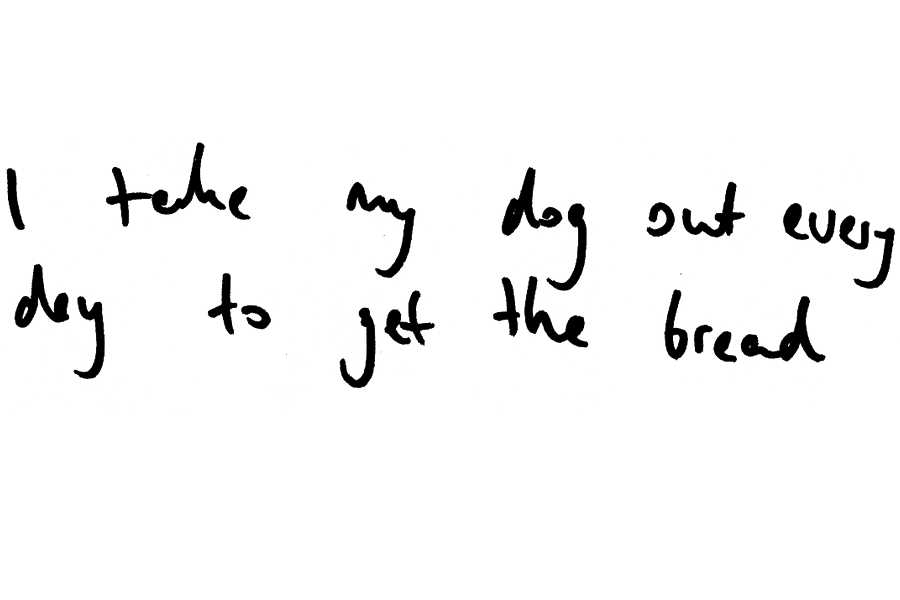 I take my dog out every
day to get the bread